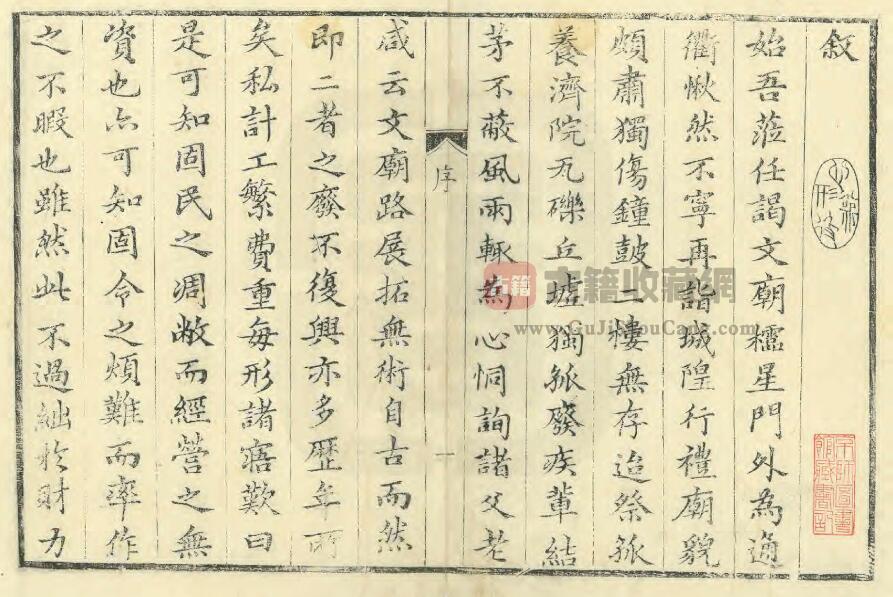 叙
始吾蒞任謁文廟櫺星門外為通
衢愀然不寧再詣城隍行禮廟貌
頗肅獨傷鐘鼓二樓無存迨祭孤
養濟院瓦礫丘墟獨孤廢疾輩結
茅不蔽風雨輙為心恫詢諸父老
咸云文廟路展拓無術自古而然
即二者之廢不復興亦多歷年所
矣私計工繁費重每形諸寤歎曰
是可知固民之凋敝而經營之無
資也亦可知固令之煩難而率作
之不暇也雖然此不過絀於財力
序
一
古籍收藏網
www.GuJiShouCang.com